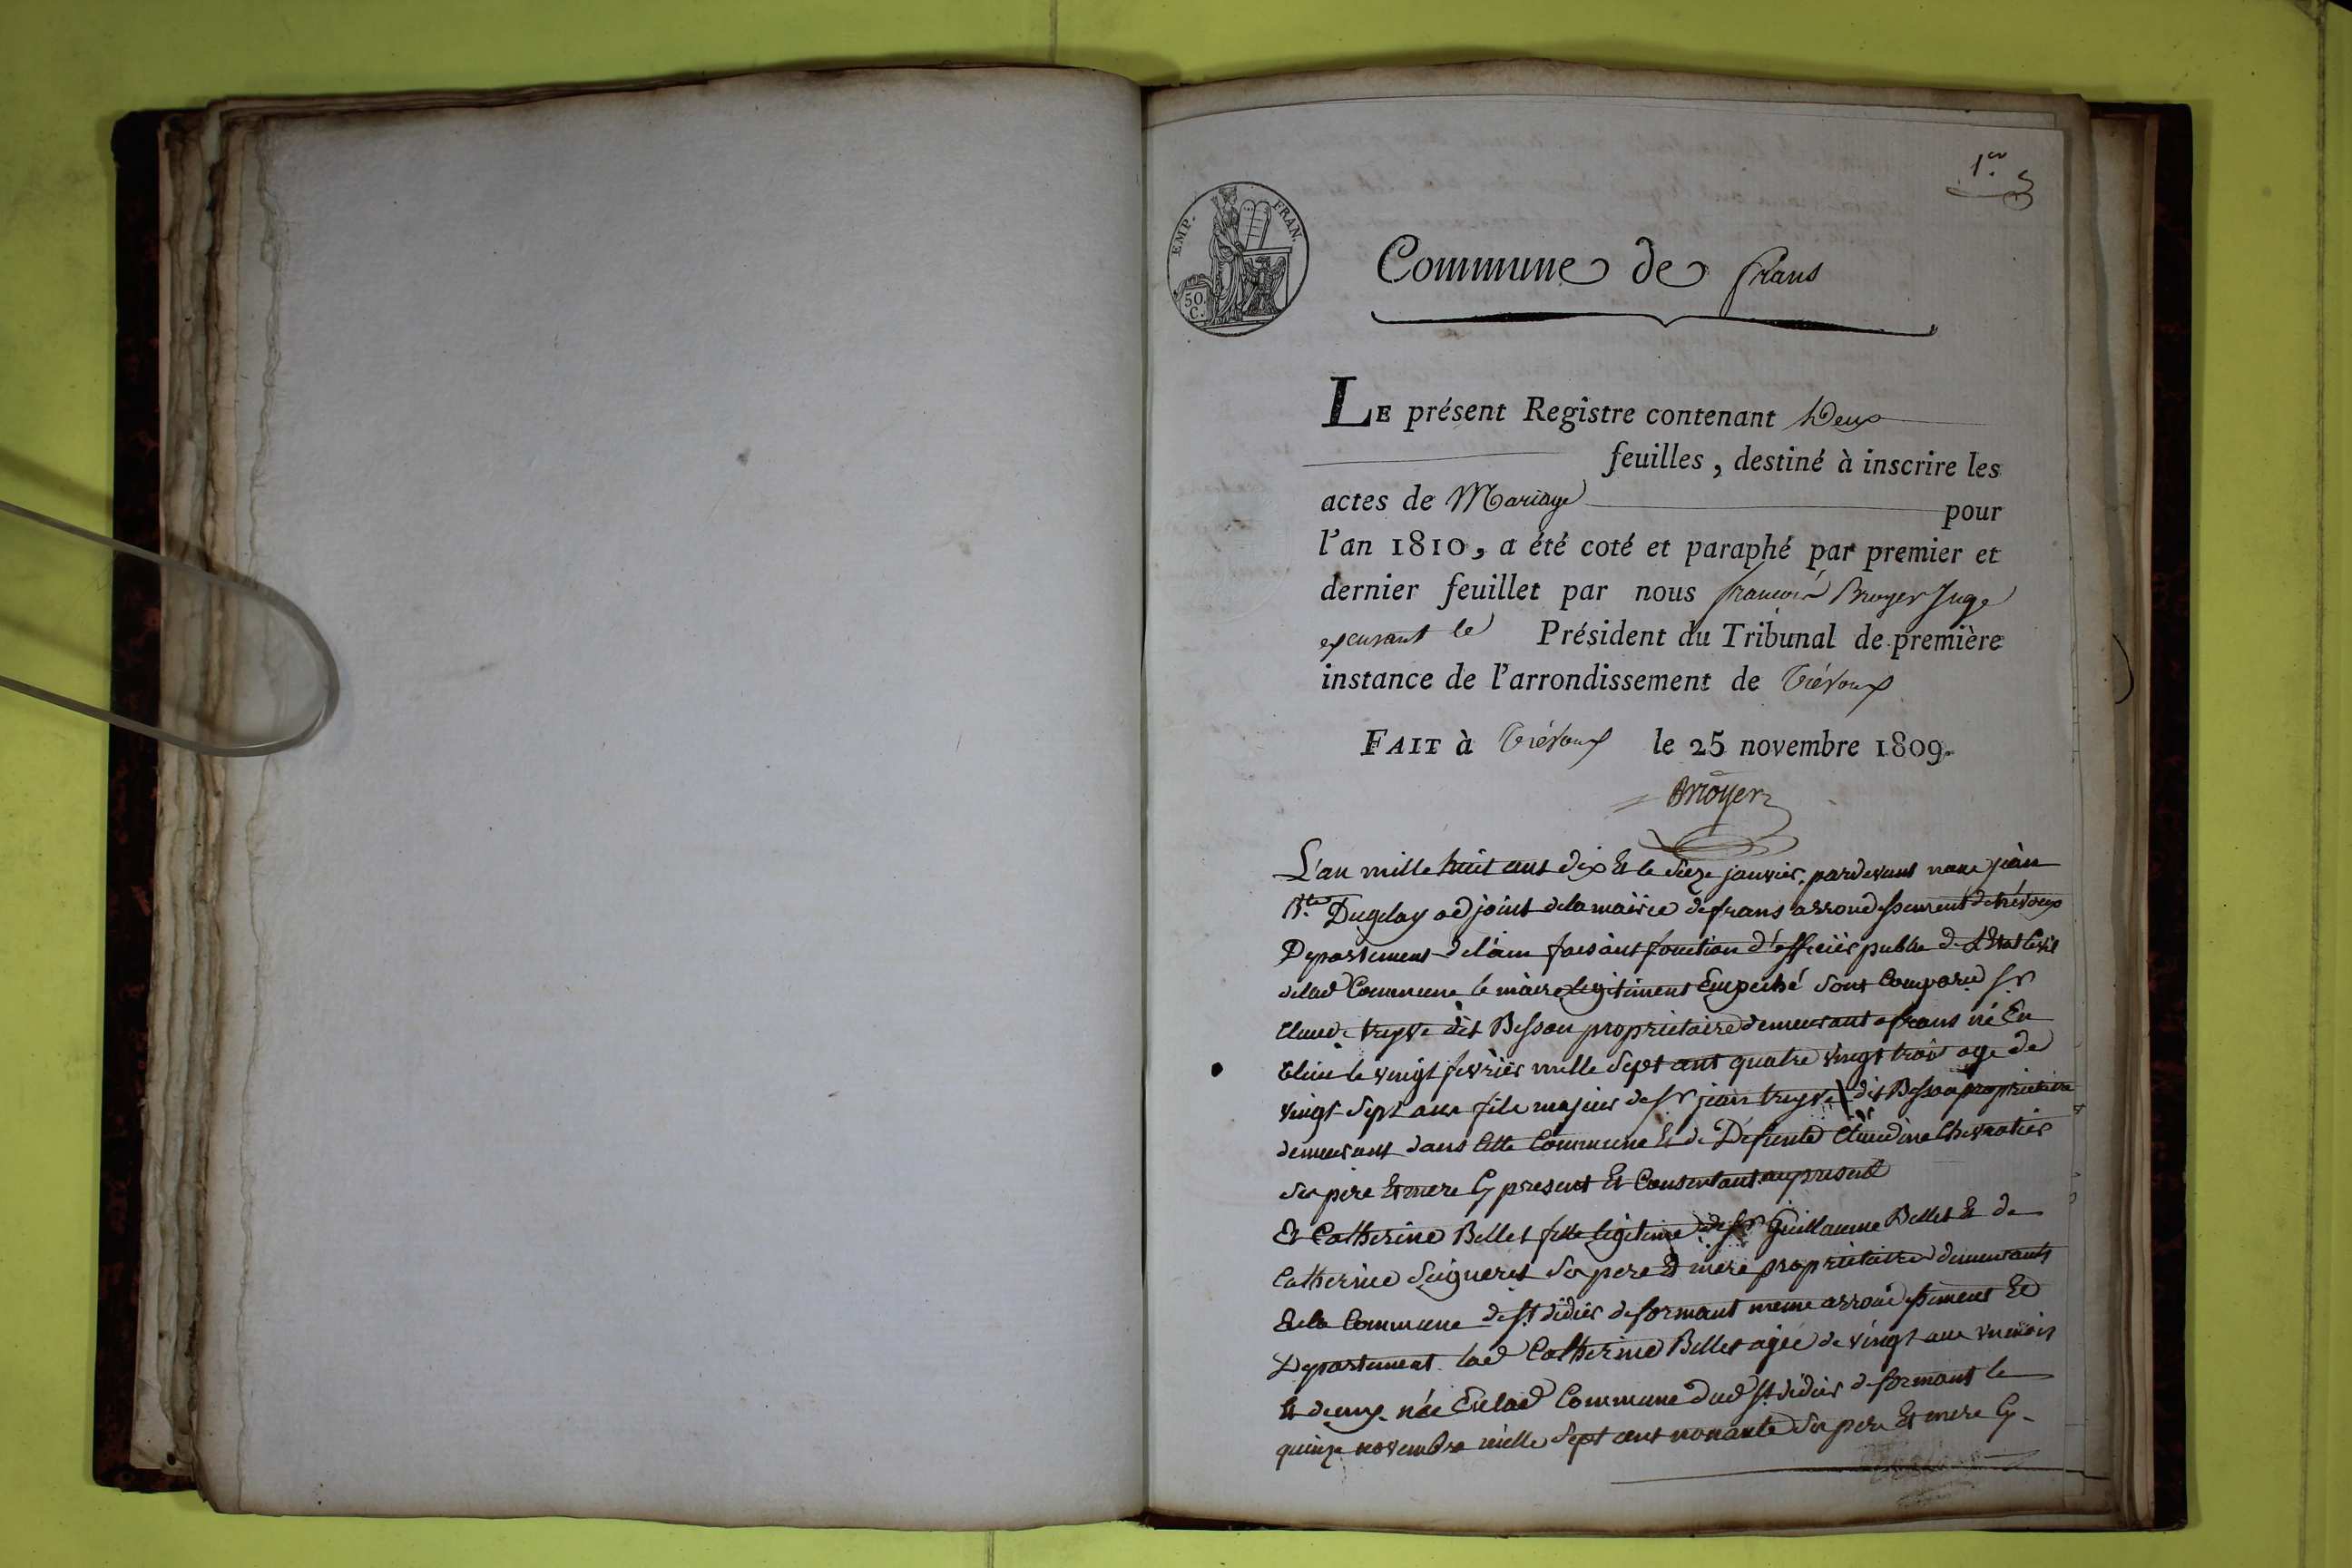 1.er
EMP. FRAN.
50 C.
Commune de frans
LE présent Registre contenant Deux
feuilles, destiné à inscrire les
actes de Mariage pour
l'an 1810, a été coté et paraphé par premier et
dernier feuillet par nous francois Broyer Juge
excusant le Président du Tribunal de première
instance de l'arrondissement de Trévoux
FAIT à Trévoux le 25 novembre 1809.
Broyer
L'an mille huit cent dix Et le seize janvier, pardevant nous jean
B.te Dugelay adjoint de la mairie de frans arrondissement de trévoux
Departement de lain faisant fonction d'officier public de Létat Civil
de lad Commune le maire legitiment Empeché sont Comparu sr
Claude treyve dit Besson proprietaire demeurant a frans né En
le vingt fevrier mille sept cent quatre vingt trois age de
vingt sept ans fils majeur de sr jean treyve dit Besson proprietaire
demeurant dans Cette Commune Et de Defunte Claudine Chevrotier
ses pere Et mere Cy present Et Consentant au present
Et Catherine Billet fille legitime de sr Guillaume Billet Et de
Catherine Seigneret ses pere Et mere proprietaire demeurants
En la Commune de st didier de formant meme arrondissement Et
Departement lad Catherine Billet agée de vingt ans un mois
Et demy née En lad Commune dud st didier de formant le
quinze novembre mille sept cent nonante ses pere Et mere Cy